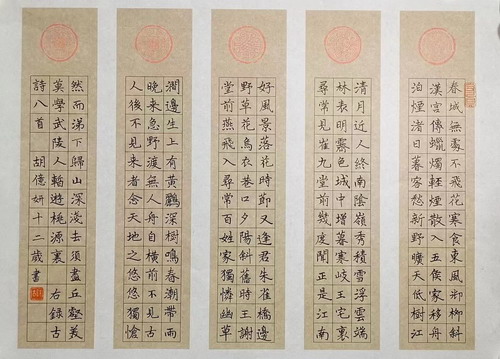 春城無處不飛花寒食東風御柳斜
漢宮傳蠟燭輕煙散入五侯家移舟
泊煙渚日暮客愁新野曠天低樹江
清月近人終南陰嶺秀積雪浮雲端
林表明霽色城中增暮寒岐王宅裏
尋常見崔九堂前幾度聞正是江南
好風景落花時節又逢君朱雀橋邊
野草花烏衣巷口夕陽斜舊時王謝
堂前燕飛入尋常百姓家獨憐幽草
澗邊生上有黃鸝深樹鳴春潮帶雨
晚來急野渡無人舟自橫前不見古
人後不見來者念天地之悠悠獨愴
然而涕下歸山深淺去須盡丘壑美
莫學武陵人暫遊桃源裏 右錄古
詩八首 胡億妍十二歲書